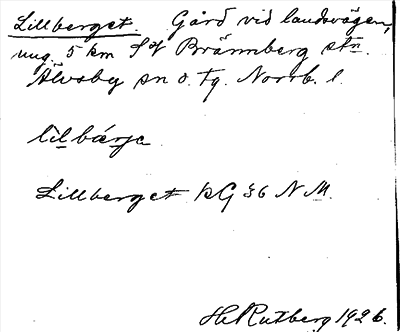 Lillberget. Gård vid landsvägen,
ung. 5 km SV Brännberg stn.
Älvsby sn o. tg. Norrb. l.
lìlbárja
Lillberget KG 36 N M.
H Rutberg 1926.